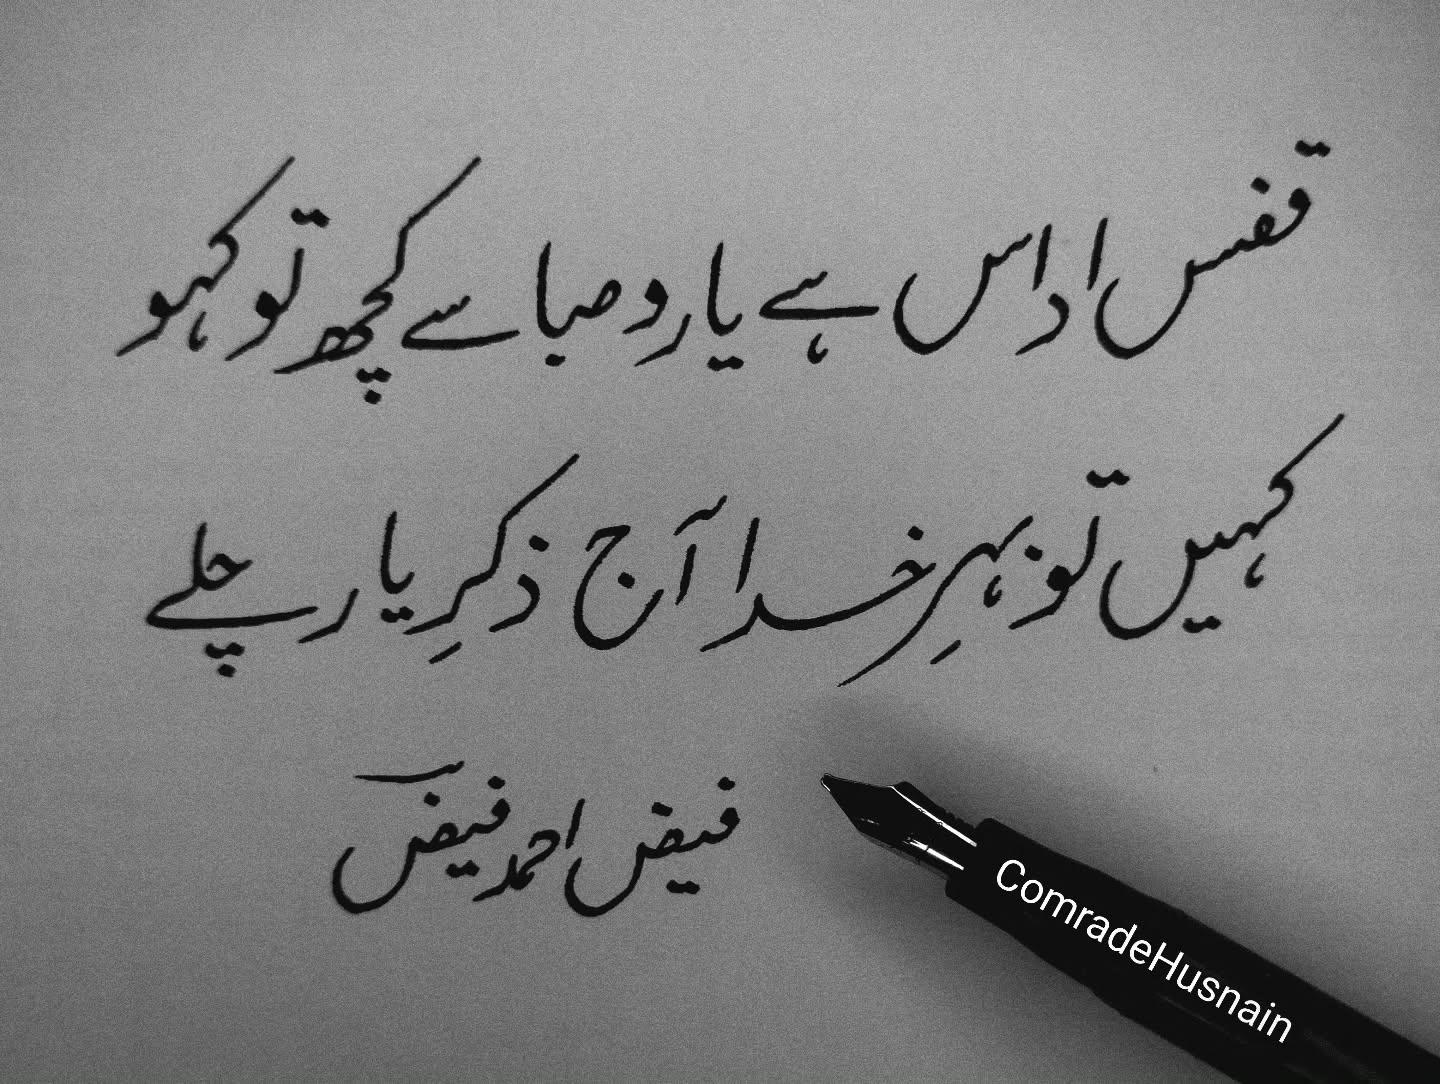 قفس اداس ہے یارو صبا سے کچھ تو کہو
کہیں تو بہرِ خدا آج ذکرِ یار چلے
فیض احمد فیضؔ
ComradeHusnain